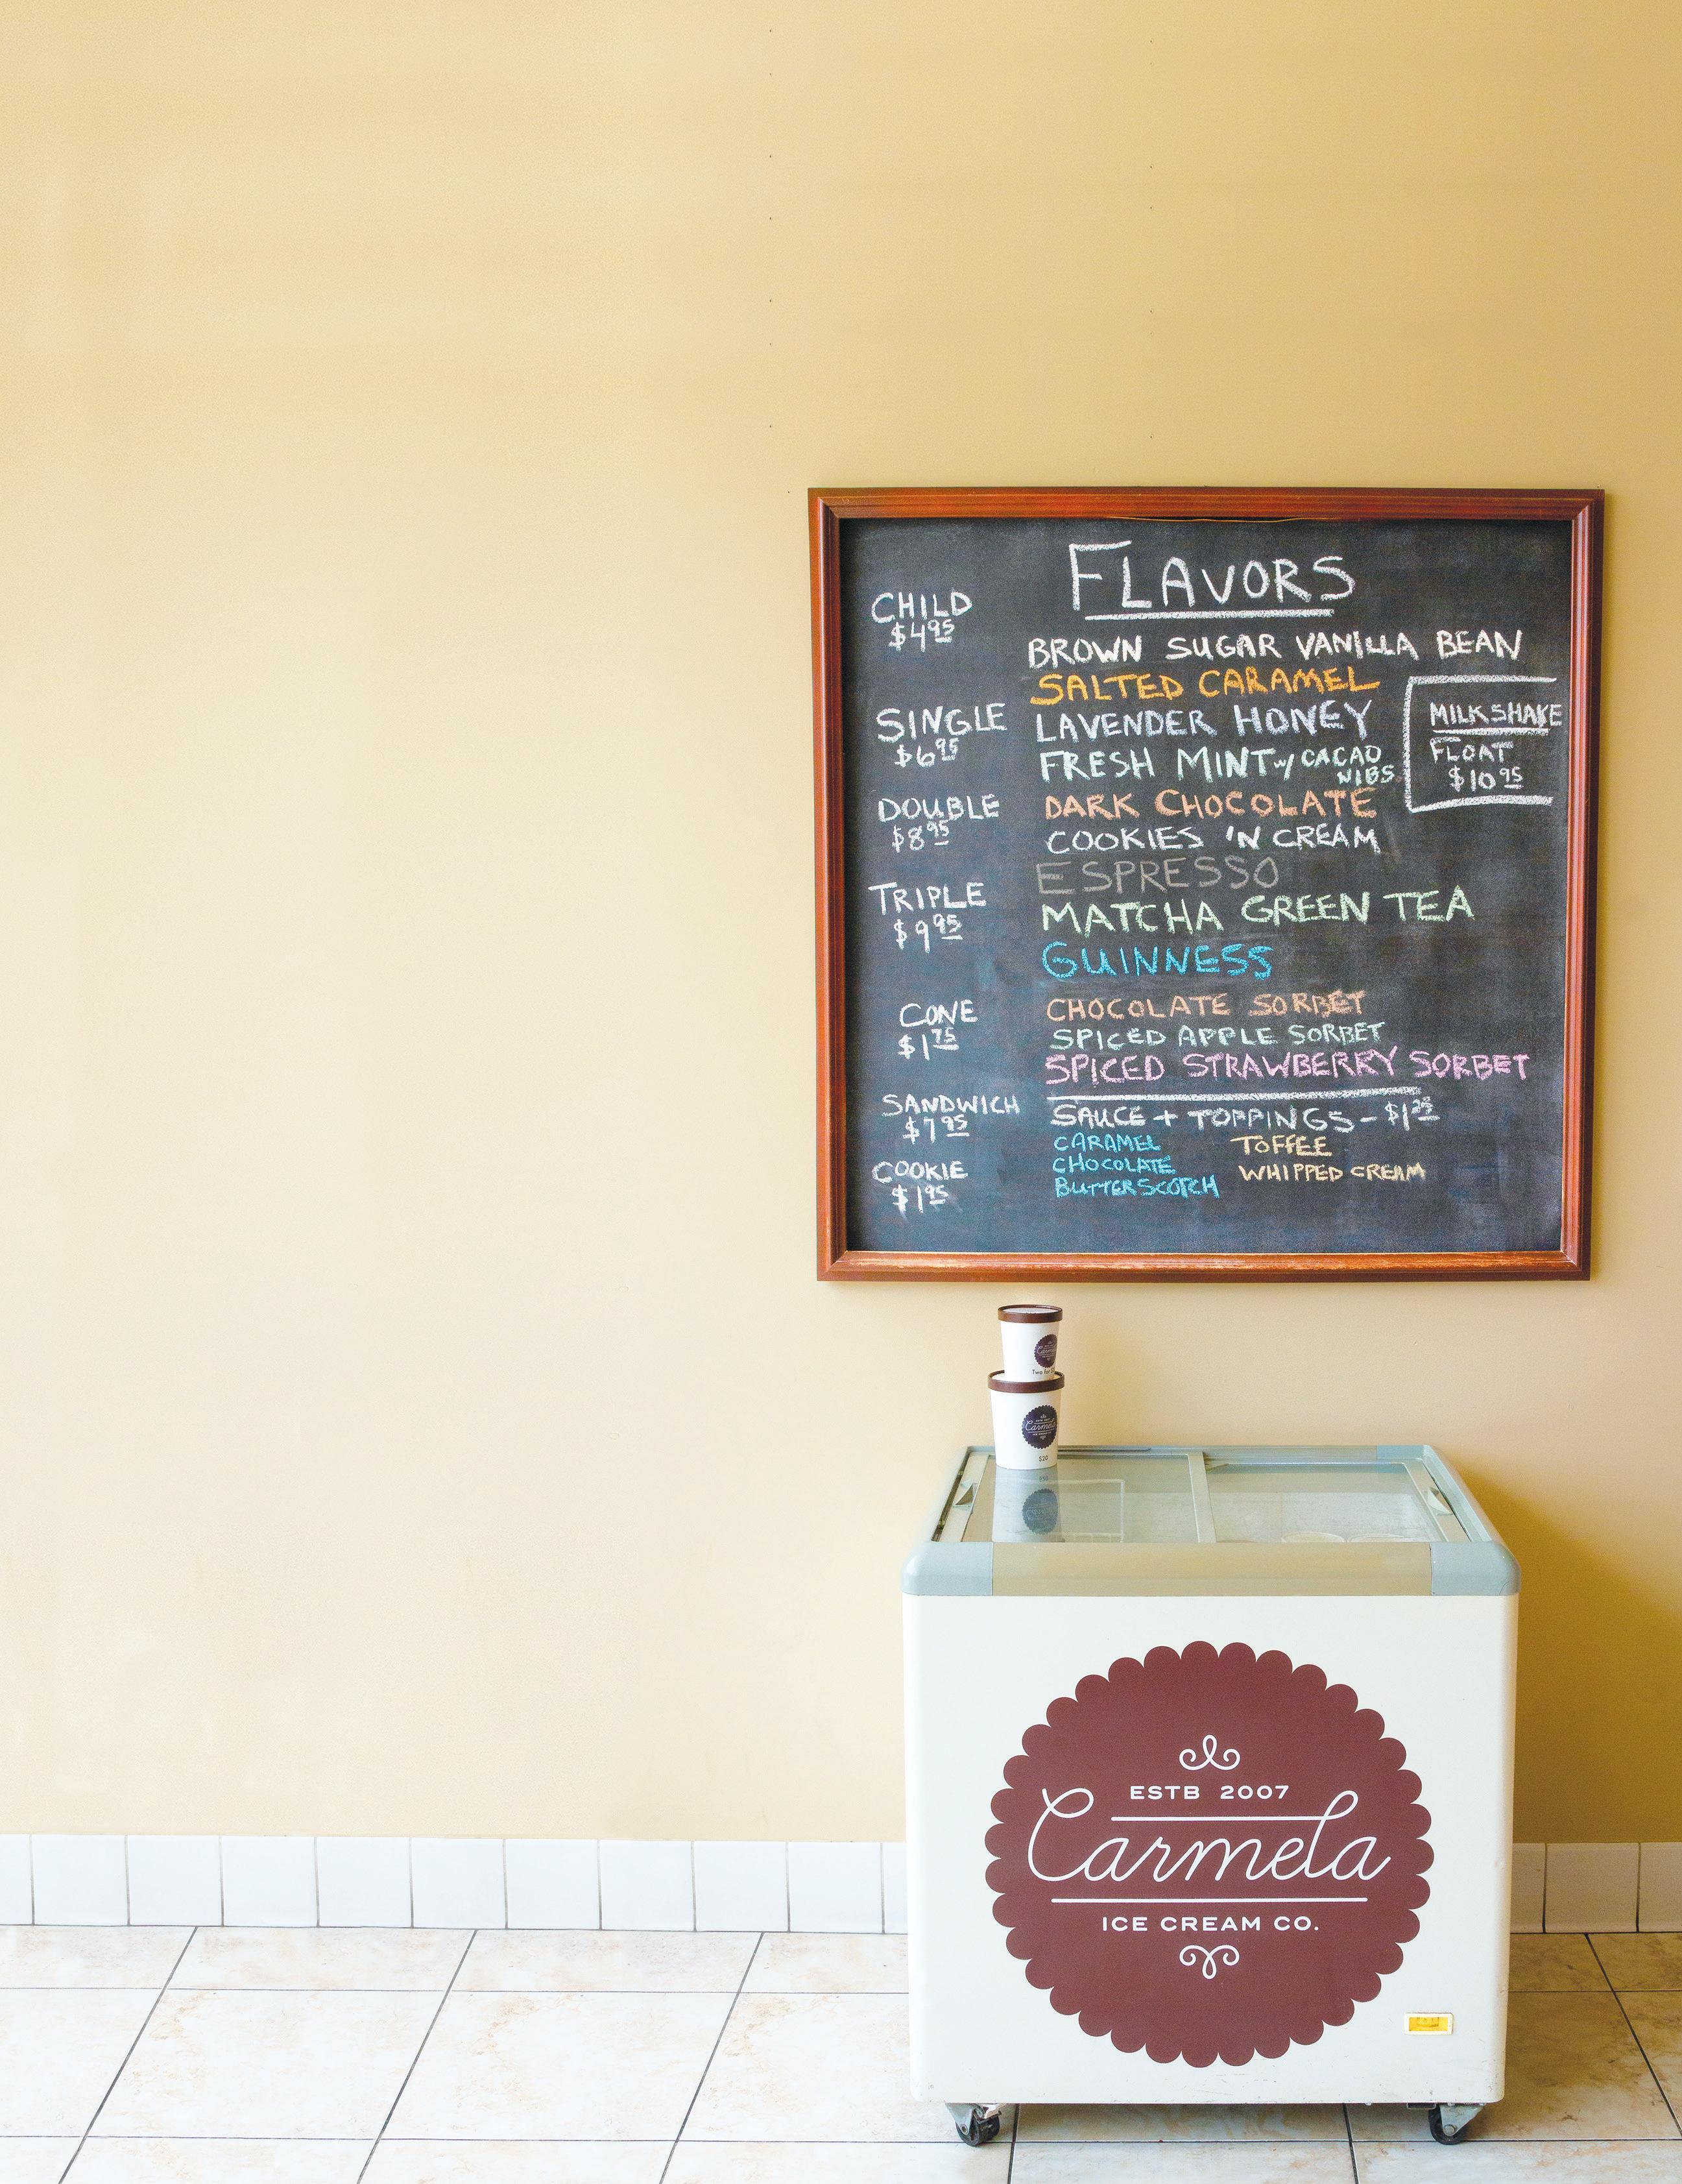 FLAVORS
CHILD
$4.95
SINGLE
$6.95
DOUBLE
$8.95
TRIPLE
$9.95
CONE
$1.75
SANDWICH
$7.95
COOKIE
$1.95
BROWN SUGAR VANILLA BEAN
SALTED CARAMEL
LAVENDER HONEY
FRESH MINT w/ CACAO
NIBS
DARK CHOCOLATE
COOKIES 'N CREAM
ESPRESSO
MATCHA GREEN TEA
GUINNESS
CHOCOLATE SORBET
SPICED APPLE SORBET
SPICED STRAWBERRY SORBET
MILKSHAKE
FLOAT
$10.95
SAUCE + TOPPINGS -
CARAMEL TOFFEE
CHOCOLATE WHIPPED CREAM
BUTTERSCOTCH
Carmela
Two For
Carmela
$20
ESTB 2007
Carmela
ICE CREAM CO.